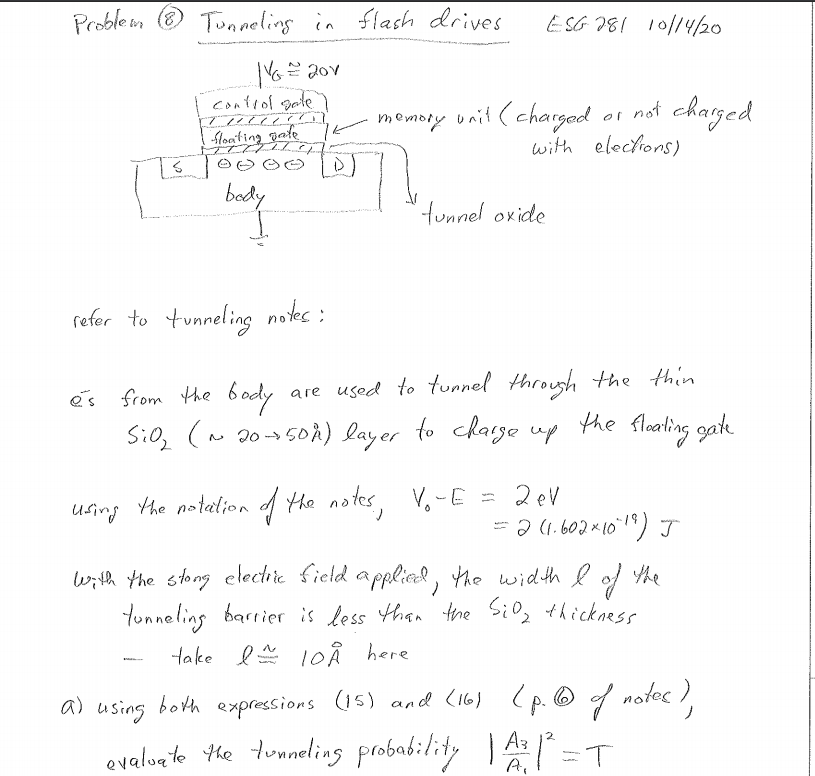 Problem ⑧ Tunneling in flash drives ESG 281 10/14/20
VG ≅ 20V
control gate
floating gate
memory unit (charged or not charged
with electrons)
S ⊖ ⊖ ⊖ ⊖ D
body
tunnel oxide
refer to tunneling notes:
e⁻s from the body are used to tunnel through the thin
SiO₂ (~ 20→50Å) layer to charge up the floating gate
using the notation of the notes, V₀-E = 2 eV
= 2 (1.602×10⁻¹⁹) J
with the stong electric field applied, the width l of the
tunneling barrier is less than the SiO₂ thickness
– take l ≅ 10Å here
a) using both expressions (15) and (16) (p. ⑥ of notes),
evaluate the tunneling probability |A₃/A₁|² = T